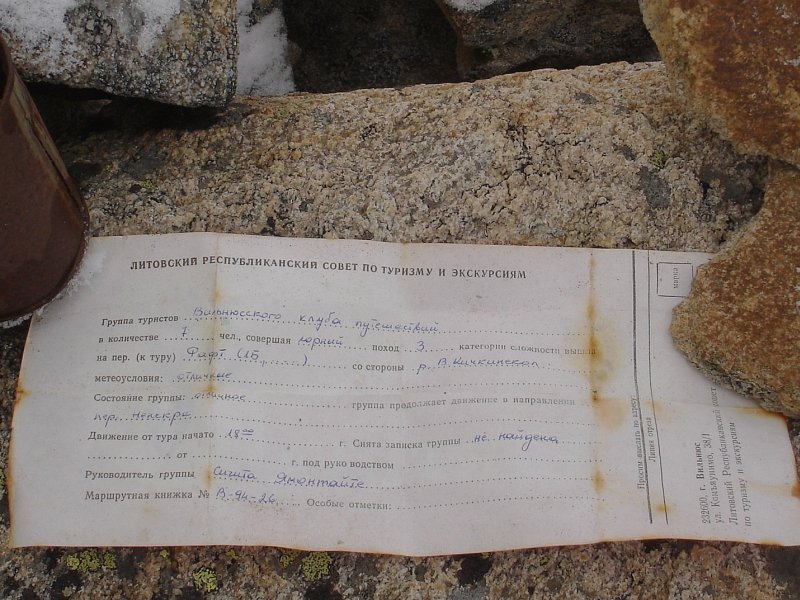 ЛИТОВСКИЙ РЕСПУБЛИКАНСКИЙ СОВЕТ ПО ТУРИЗМУ И ЭКСКУРСИЯМ
Группа туристов Вильнюсского клуба путешествий
в количестве 7 чел., совершая горный поход 3 категории сложности вышла
на пер. (к туру) (1Б, ) со стороны р. В. Кичкинекол
метеоусловия: отличные
Состояние группы: отличное группа продолжает движение в направлении
пер.
Движение от тура начато 18 00 г. Снята записка группы не найдена
от г. под руководством
Руководитель группы Сигита Ямонтайте
Маршрутная книжка № В-94-26 Особые отметки:
Просим выслать по адресу
Линия отреза
марка
232600, г. Вильнюс
38/1
Литовский Республиканский совет
по туризму и экскурсиям